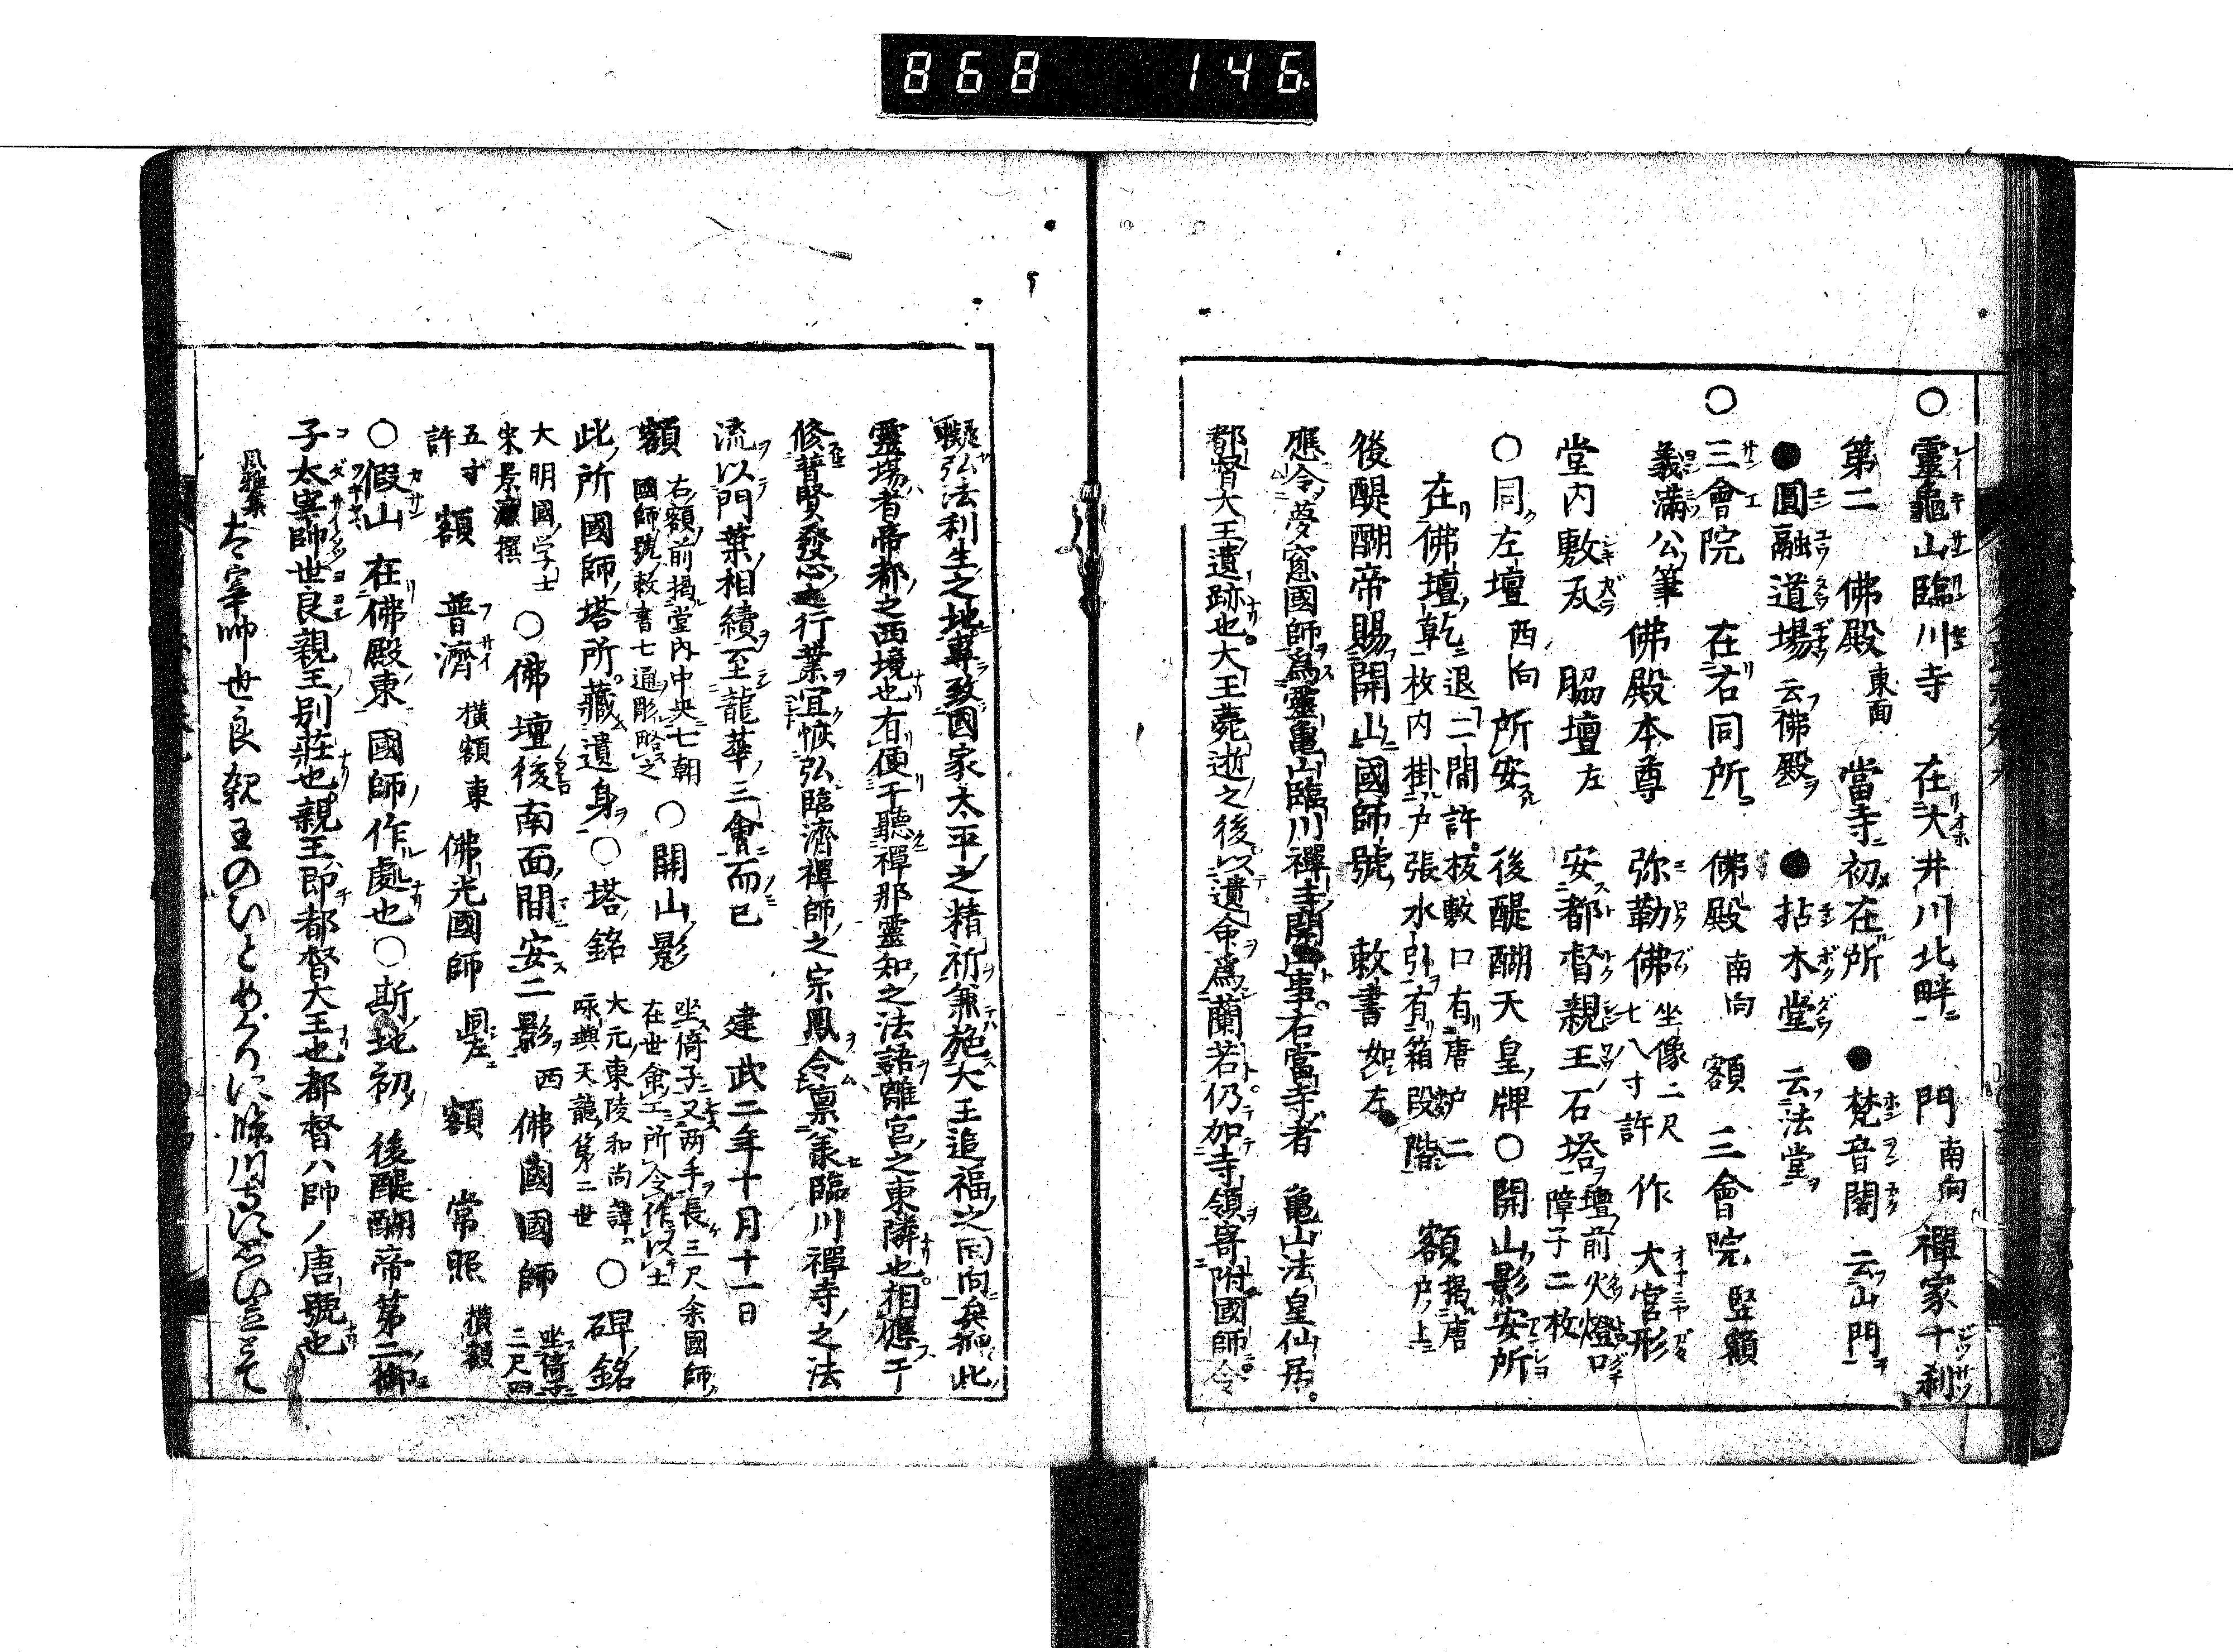 868 146
○靈龜山臨川寺 在大井川北畔 門 南向 禪家十刹
第二 佛殿 東面 當寺初在所 ●梵音閣 云山門
●圓融道場 云佛殿 ●拈木堂 云法堂
○三會院 在右同所 佛殿 南向 額 三會院 竪額
義満公筆 佛殿本尊 弥勒佛 坐像二尺七八寸許 作 大宮形
堂内敷瓦 脇壇 左 安都督親王石塔 壇前火燈口障子二枚
○同左壇 西向 所安 後醍醐天皇牌○開山影安所
在佛壇乾 退二間許枝敷口有唐炉二枚内掛戸張水引有箱段階 額 掲唐戸上
後醍醐帝賜開山國師號 敕書 如左
應令夢窓國師爲靈亀山臨川禪寺開山事右當寺者 亀山法皇仙居
都督大王遺跡也大王薨逝之後以遺命爲蘭若仍加寺領寄附國師令
擬弘法利生之地專致國家太平之精祈兼施大王追福之回向矣 此
靈場者帝都之西境也有便于聽禪那靈知之法語離宮之東隣也相應于
修普賢發心之行業宜恢弘臨濟禪師之宗風令稟業臨川禪寺之法
流以門葉相續至龍華三會而已 建武二年十月十一日
額 右額前掲堂内中央七朝國師號敕書七通彫略之 ○開山影 坐倚子又两手長三尺余國師在世命工所令作以士
此所國師塔所藏遺身○塔銘 大元東陵和尚諱永璵天龍第二世 ○碑銘
大明國学士宋景濂撰 ○佛壇後南面間安二影 西 佛國國師 坐倚子三尺四
五寸許 額 普濟 横額 東 佛光國師 額 常照 横額
○假山 在佛殿東 國師作處也○斯地初 後醍醐帝第二御
子太宰帥世良親王別莊也親王即都督大王也都督ハ帥ノ唐號也
風雅集 太宰帥世良親王のいとめくりに臨川寺に